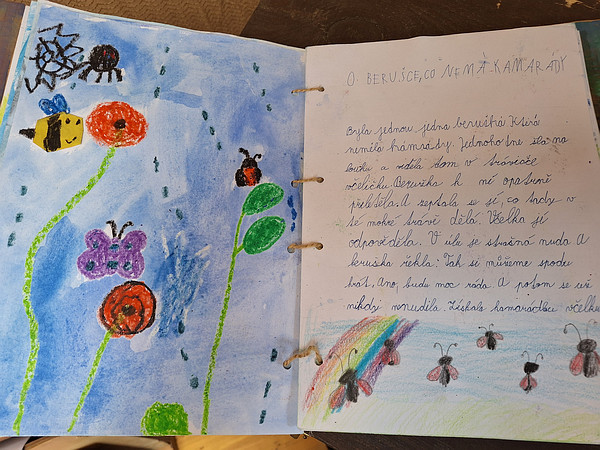 O BERUŠCE, CO NEMÁ KAMARÁDY
Byla jednou jedna beruška Která
neměla kamrády. Jednoho dne šla na
louku a viděla tam v trávičce
včeličku. Beruška k ní opatrně
přilétěla. A zeptala se jí, co tady v
té mokré trávě dělá. Včelka jí
odpověděla. V úle je strašná nuda A
beruška řekla: Tak si můžeme spolu
hrát. Ano, budu moc ráda. A potom se už
nikdy nenudila. Získala kamarádku včelku